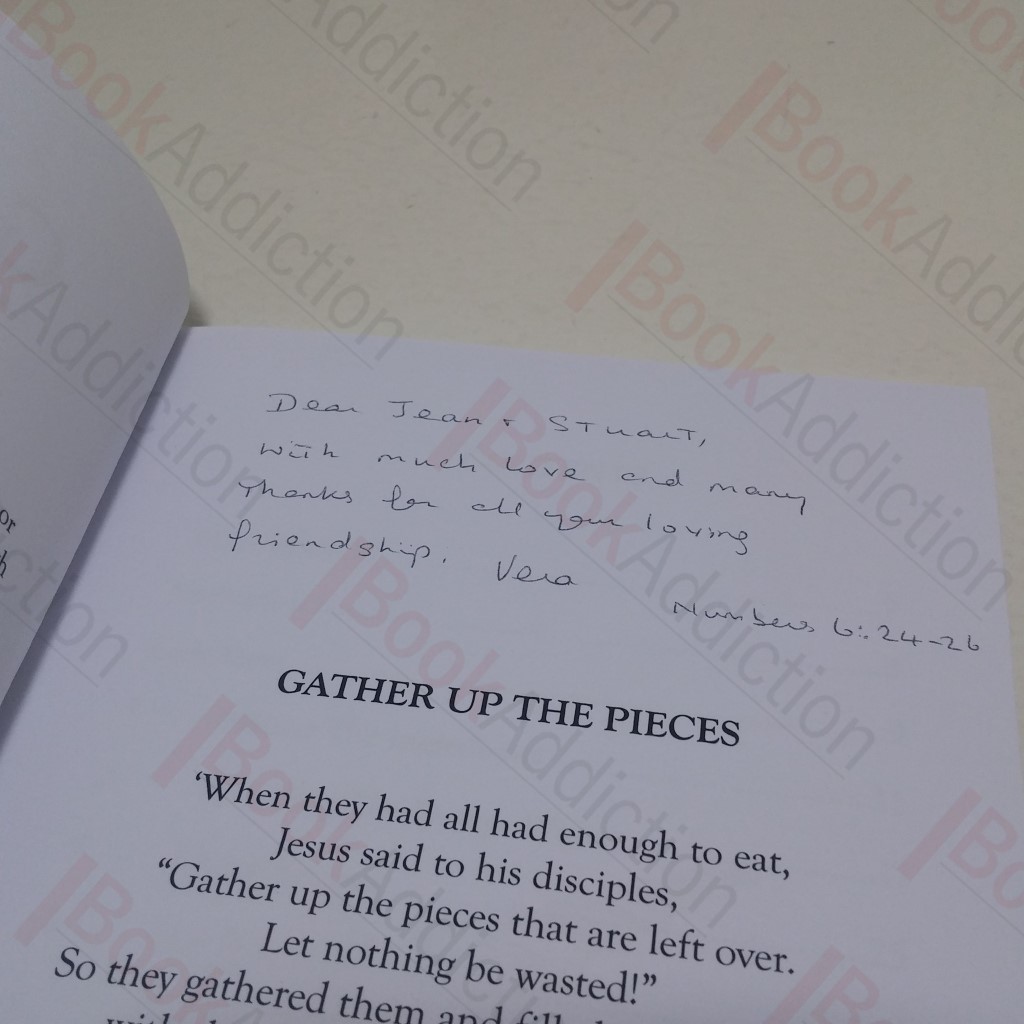 Dear Jean + Stuart,
with much love and many
thanks for all your loving
friendship. Vera
Numbers 6:24-26
GATHER UP THE PIECES
‘When they had all had enough to eat,
Jesus said to his disciples,
“Gather up the pieces that are left over.
Let nothing be wasted!”
So they gathered them and
or
h
BookAddiction